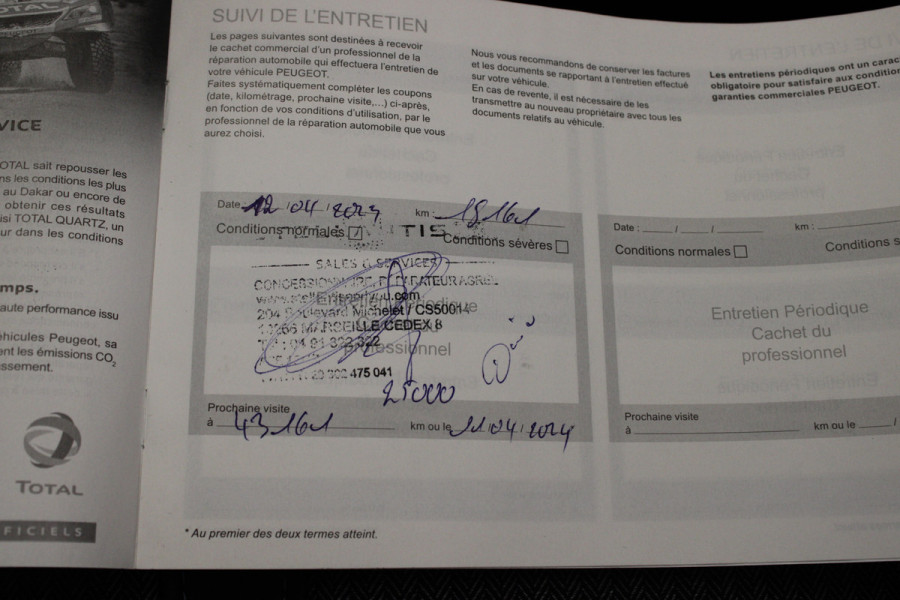 TOTAL
VICE
OTAL sait repousser les
ns les conditions les plus
au Dakar ou encore de
obtenir ces résultats
isi TOTAL QUARTZ, un
ur dans les conditions
mps.
aute performance issu
éhicules Peugeot, sa
ent les émissions CO2
ssement.
TOTAL
FICIELS
SUIVI DE L'ENTRETIEN
Les pages suivantes sont destinées à recevoir
le cachet commercial d'un professionnel de la
réparation automobile qui effectuera l'entretien de
votre véhicule PEUGEOT.
Faites systématiquement compléter les coupons
(date, kilométrage, prochaine visite,...) ci-après,
en fonction de vos conditions d'utilisation, par le
professionnel de la réparation automobile que vous
aurez choisi.
Nous vous recommandons de conserver les factures
et les documents se rapportant à l'entretien effectué
sur votre véhicule.
En cas de revente, il est nécessaire de les
transmettre au nouveau propriétaire avec tous les
documents relatifs au véhicule.
Les entretiens périodiques ont un carac
obligatoire pour satisfaire aux condition
garanties commerciales PEUGEOT.
Date 12/04/2023 km 18161
Conditions normales Conditions sévères
TIS
SALES & SERVICES
CONCESSIONNAIRE, REPARATEUR AGREE
204 Boulevard Michelet / CS50014
MARSEILLE CEDEX 8
475 041
professionnel
25000
Prochaine visite
à 43161 km ou le 11/04/2024
* Au premier des deux termes atteint.
Date : __/__/__ km :
Conditions normales Conditions s
Entretien Périodique
Cachet du
professionnel
Prochaine visite
à km ou le /